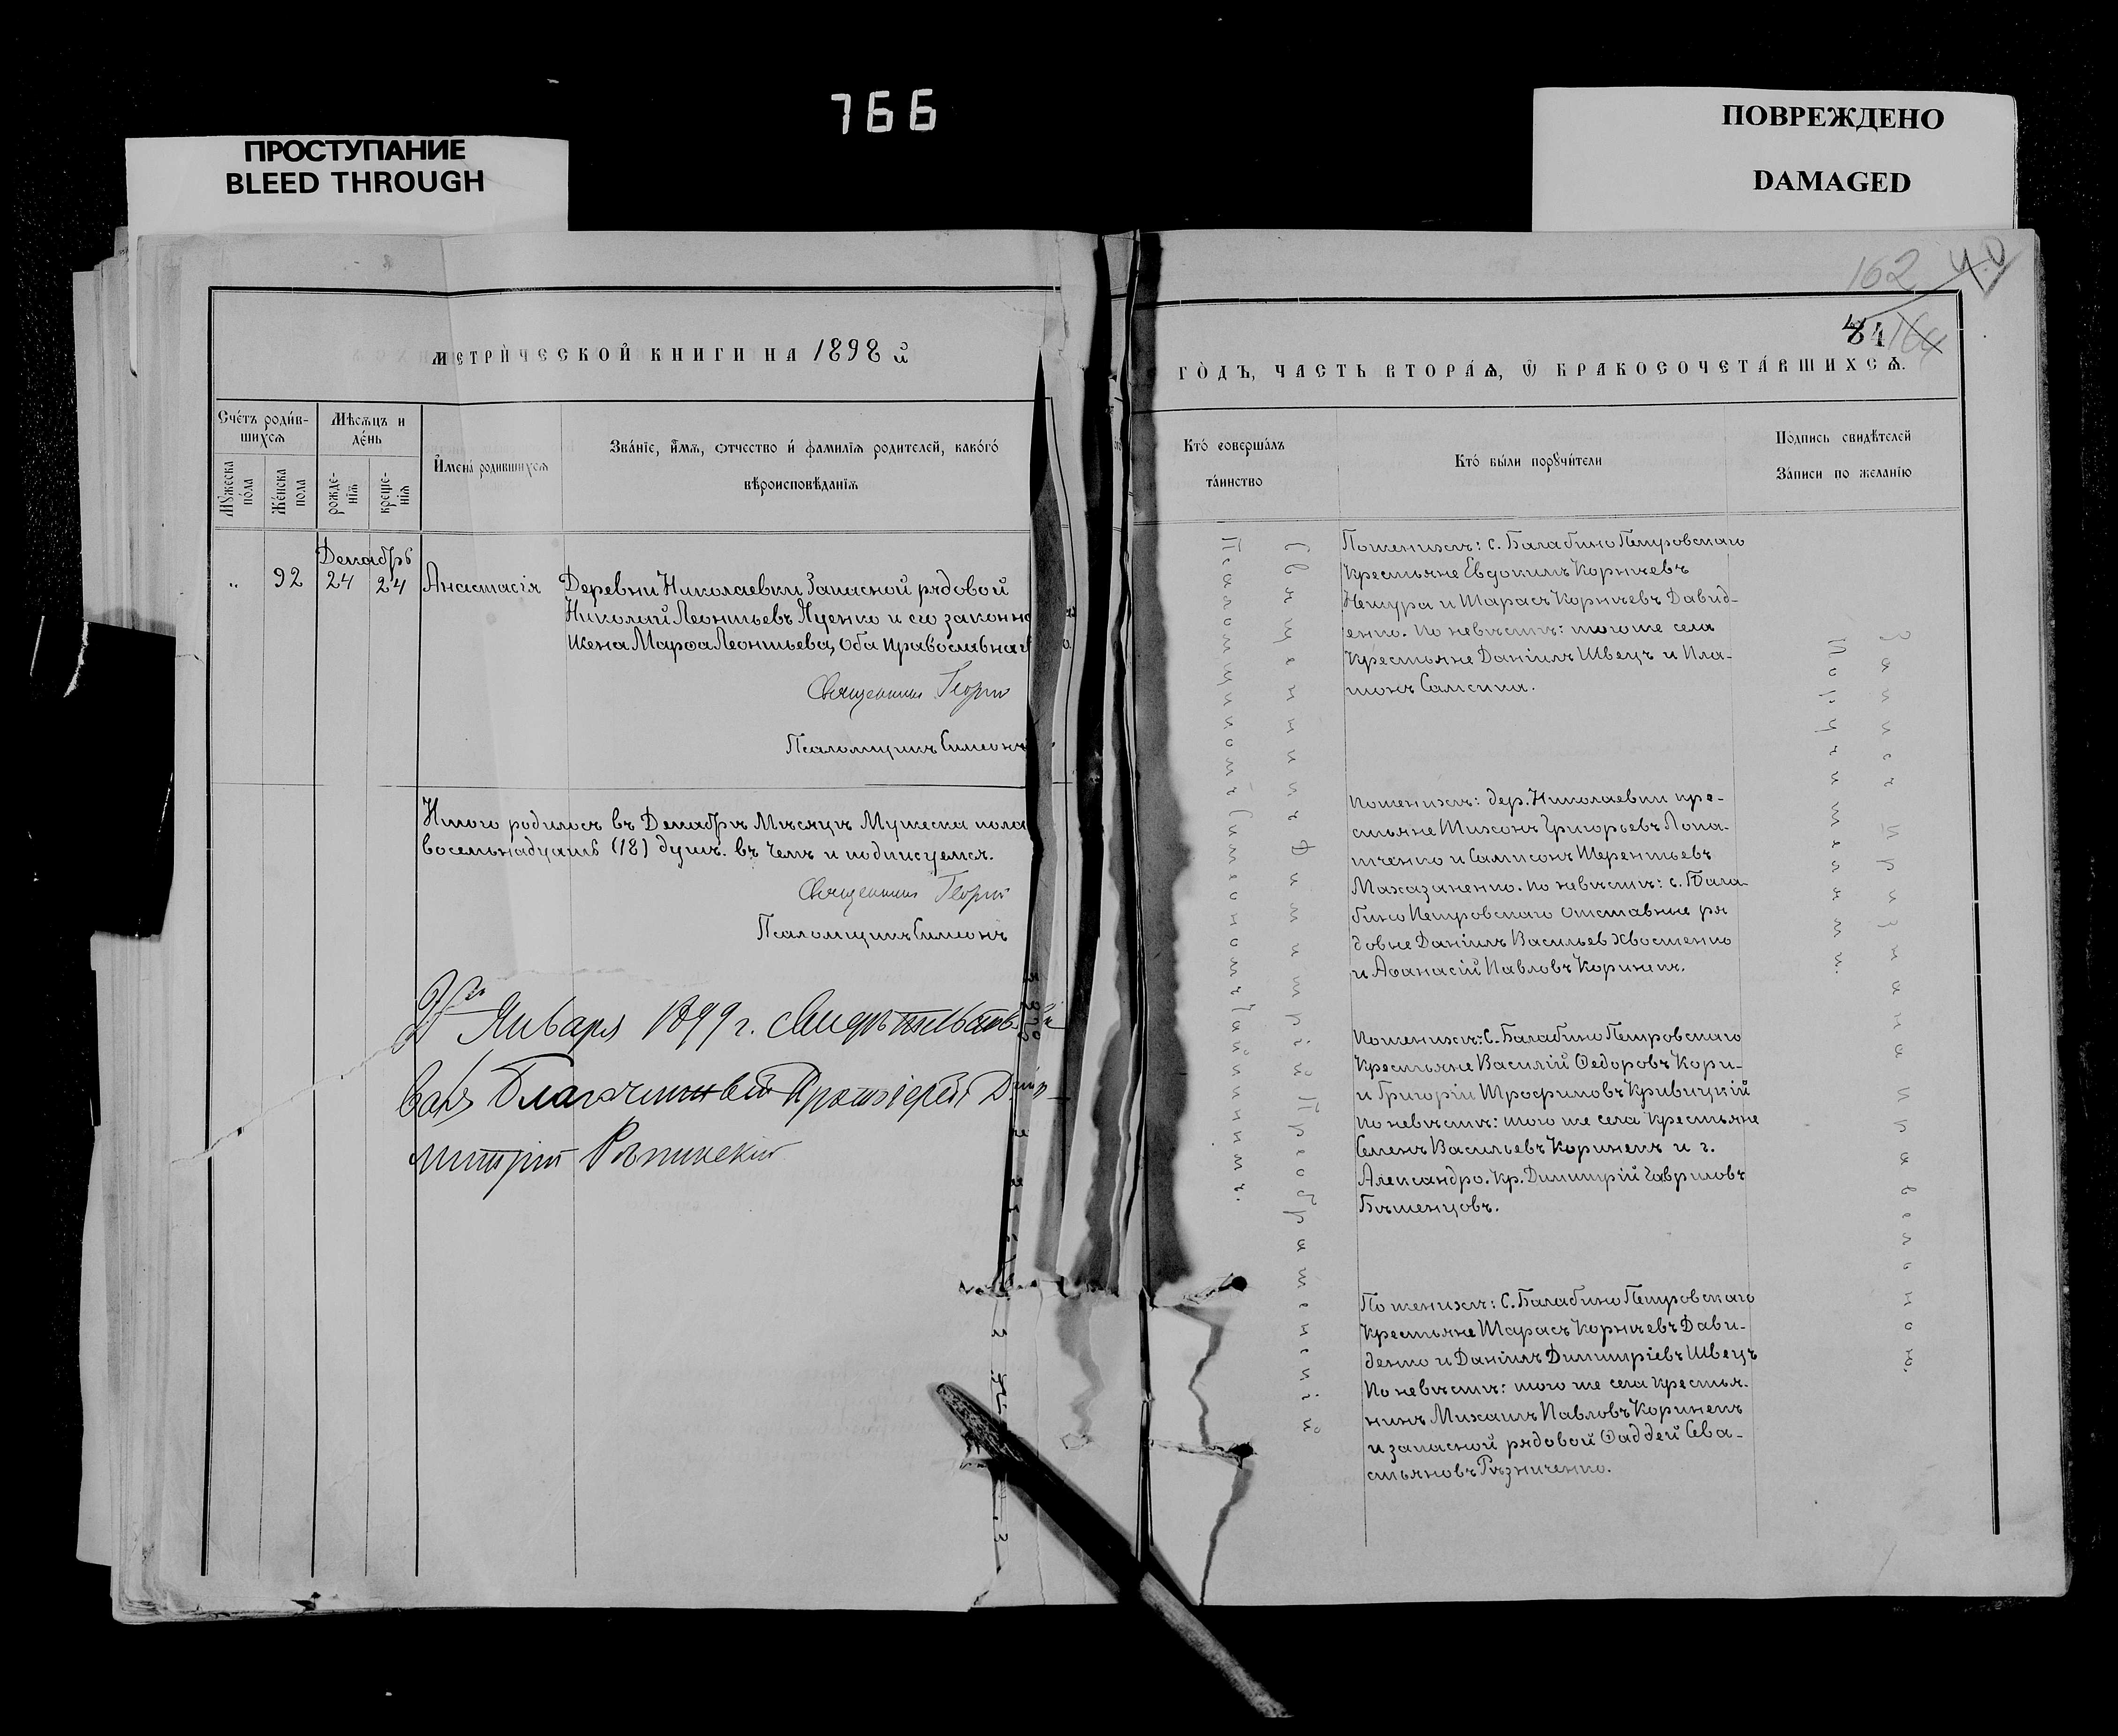 766
ПРОСТУПАНИЕ
BLEED THROUGH
ПОВРЕЖДЕНО
DAMAGED
162
84
164
МЕТРИЧЕСКОЙ КНИГИ НА 1898 й
Счетъ родив-
шихся
Мѣсяцъ и
день
Мужеска
пола
Женска
пола
рожде-
нія
креще-
нія
Имена родившихся
Званіе, имя, отчество и фамилія родителей, какого
вѣроисповѣданія
Декабрь
„ 92 24 24 Анастасія
Деревни Николаевки Запасной рядовой
Николай Леонтьевъ Яценко и его законно
жена Марѳа Леонтьева, оба православнаг
Священникъ Георгій
Псаломщикъ Симеонъ
Итого родилось въ Декабрѣ Мѣсяцѣ Мужеска пола
восемьнадцать (18) душъ. въ чемъ и подписуемся.
Священникъ Георгій
Псаломщикъ Симеонъ
Января 1899 г. свидѣтельство
валъ Благочинный Протоіерей Ди
митрій
ГОДЪ, ЧАСТЬ ВТОРАЯ, Ѡ БРАКОСОЧЕТАВШИХСЯ.
Кто совершалъ
таинство
Кто были поручители
Подпись свидѣтелей
Записи по желанію
Священникъ Димитрій Преображенскій
Псаломщикомъ Симеономъ
По женихѣ: с. Балабино Петровскаго
Крестьяне Евдокимъ Корнѣевъ
и Тарасъ Корнѣевъ Давид-
енко. по невѣстѣ: того же села
Крестьяне Даніилъ Швецъ и Пла-
тонъ
По женихѣ: дер. Николаевки кре-
стьяне Тихонъ Григорьевъ Лопа-
тченко и Самсонъ Терентьевъ
Маказаненко. по невѣстѣ: с. Бала-
бино Петровскаго отставные ря
довые Даніилъ Васильев Хвостенко
и Аѳанасій Павловъ Коринецъ.
По женихѣ: С. Балабино Петровскаго
Крестьяне Василій Ѳедоровъ Кори-
и Григорій Трофимовъ Кривицкій
По невѣстѣ: того же села Крестьяне
Семенъ Васильевъ Коринецъ и г.
Александро. Кр. Димитрій Гавриловъ
По женихѣ: С. Балабино Петровскаго
Крестьяне Тарасъ Корнѣевъ Дави-
денко и Даніилъ Димитріевъ Швецъ
По невѣстѣ: того же села Крестья-
нинъ Михаилъ Павловъ Коринецъ
и запасной рядовой Ѳаддей Сева-
стьяновъ Рѣзниченко.
Поручителями.
Запись Признана Правильной.